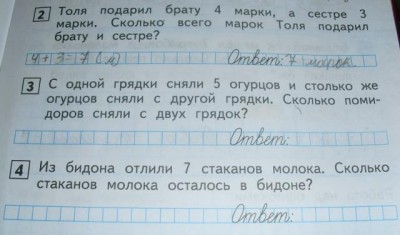 2 Толя подарил брату 4 марки, а сестре 3
марки. Сколько всего марок Толя подарил
брату и сестре?
4+3=7 (м) Ответ: 7 марок
3 С одной грядки сняли 5 огурцов и столько же
огурцов сняли с другой грядки. Сколько поми-
доров сняли с двух грядок?
Ответ:
4 Из бидона отлили 7 стаканов молока. Сколько
стаканов молока осталось в бидоне?
Ответ: